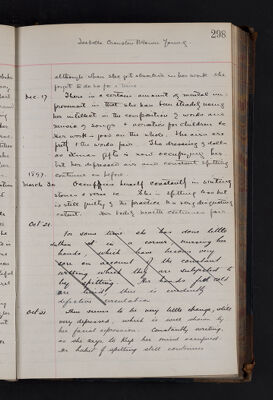 298
Isabella
Young
although when she got absorbed in her work she
forgot to do so for a time
Dec. 17 There is a certain amount of mental im-
provement in that she has been steadily using
her intellect in the composition of words and
music of songs & recitation for children
Her work is poor on the whole. The airs are
the words fair. The dressing of dolls
as Xmas gifts is now occupying her
but her depressed airs and constant spitting
continues as before
1897.
March 30 Occupies herself constantly in writing
stories & verse etc. She is spitting less but
is still guilty of the practice to a very disquieting
extent. Her bodily health continues fair
Oct 21 For some time she has done little
but sit in a corner nursing her
hands, which have become very
sore on account of the constant
wetting which they are subjected to
by spitting. The hands feel cold
are there is evidently
defective circulation
Oct 21. There seems to be very little change, still
very depressed, which is well shown by
her facial expression. Constantly writing,
as she says to keep her mind occupied
Her habit of spitting still continues